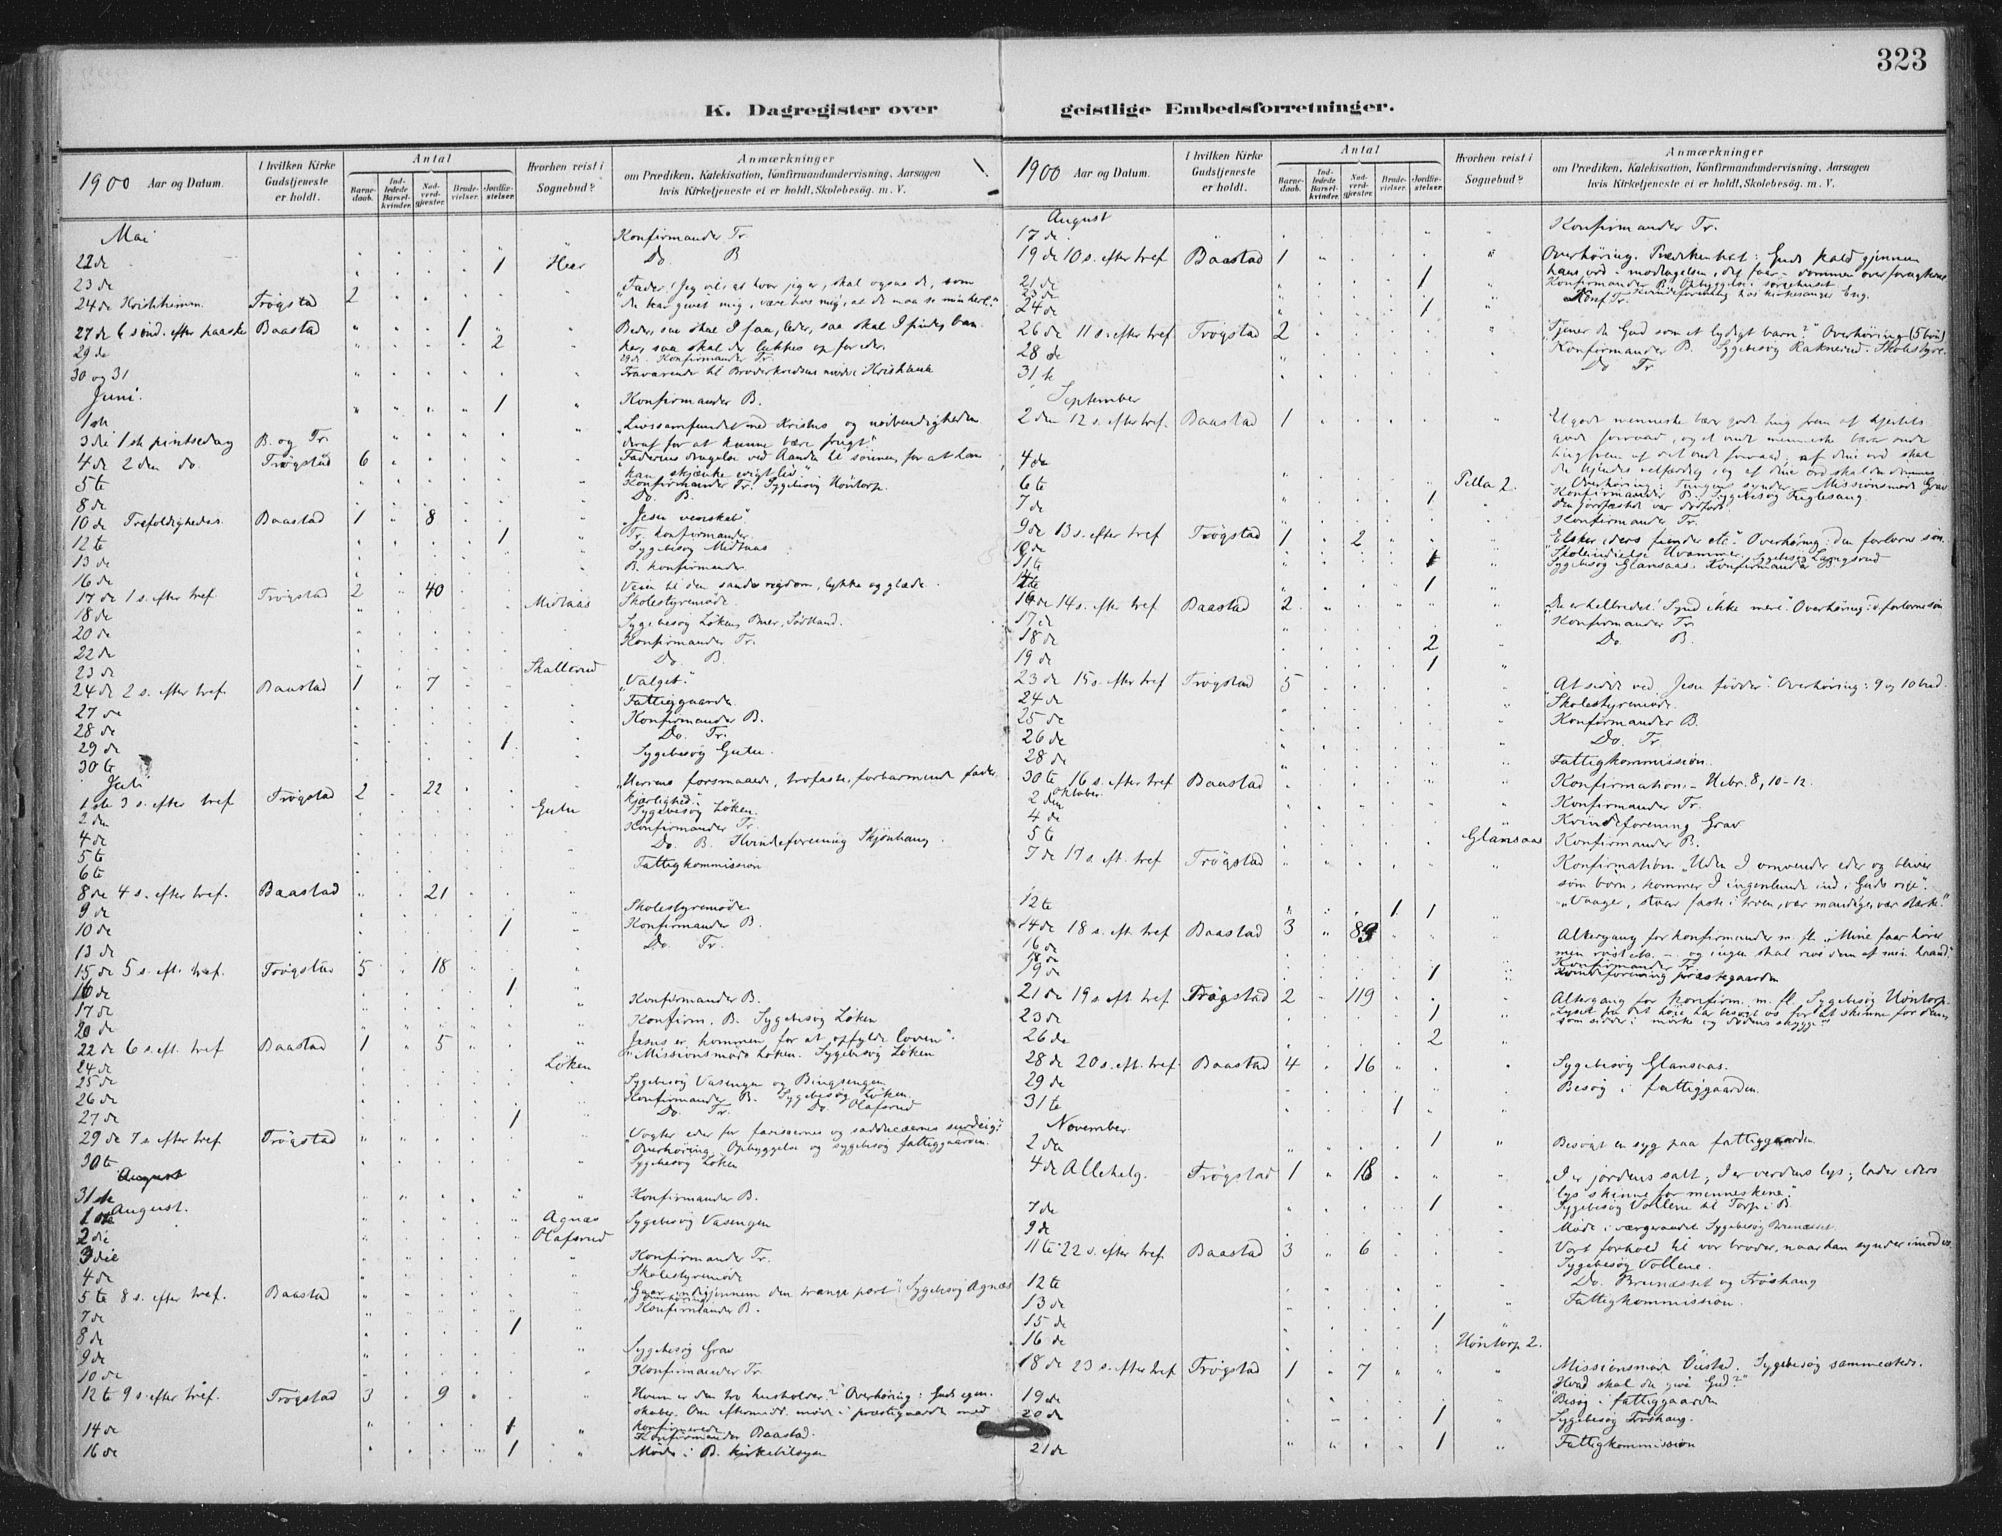 323
K. Dagregister over geistlige Embedsforretninger.
1900 Aar og Datum.
I hvilken Kirke Gudstjeneste er holdt.
Antal
Barnedaab.
Indledede Barselkvinder.
Nadverdgjester.
Brudevielser.
Jordfæstelser.
Hvorhen reist i Sognebud?
Anmærkninger
om Prædiken, Katekisation, Konfirmandundervisning, Aarsagen
hvis Kirketjeneste ei er holdt, Skolebesøg. m. V.
Mai
Konfirmander Tr.
22 de 1 Do B
23 de
24 de Kristihimm. Trøgstad 2 Fader! Jeg vil, at hvor jeg er, skal ogsaa de, som
du har givet mig, være hos mig, at de maa se min herl."
27 de 6 sønd. efter paaske Baastad 1 Beder, saa skal I faa, leder, saa skal I finde, ban-
29 de 2 ker, saa skal der lukkes op for eder.
29 de. Konfirmander Tr.
30 og 31
Juni.
1 ste 1 Konfirmander B.
"Livssamfundet med Kristus og nødvendigheden
3 die 1 ste pintsedag B. og Tr. deraf for at kunne bære frugt."
4 de 2 den do. Trøgstad 6 "Faderens dragelse ved Aanden til sønnen, for at han
kan skjænke evigt liv"
5 te Konfirmander Tr. Sygebesøg Høntorp.
8 de Do. B.
10 de Trefoldighedss. Baastad 1 8 "Jesu venskab"
12 te 1 Tr. konfirmander.
13 de Sygebesøg Midtaas
16 de B. konfirmander.
17 de 1 s. efter tref. Trøgstad 2 40 Veien til den sande rigdom, lykke og glæde.
18 de Midtaas Skolestyremøde.
20 de Sygebesøg Løken,
22 de Konfirmander Tr.
23 de Skallerud Do. B.
24 de 2 s. efter tref. Baastad 1 7 "Valget."
27 de Fattiggaarden
28 de Konfirmander B.
29 de 1 Do. Tr.
30 te Sygebesøg Gutu.
Juli
1 ste 3 s. efter tref Trøgstad 2 22 Herrens forsmaaede, trofaste, forbarmende fader
kjærlighed".
2 den Gutu Sygebesøg Løken.
4 de Konfirmander Tr.
5 te Do. B. Kvindeforening Skjønhaug.
6 te Fattigkommission
8 de 4 s. efter tref. Baastad 21
9 de Skolestyremøde.
10 de 1 Konfirmander B.
13 de Do. Tr.
15 de 5 s. eft. tref. Trøgstad 5 18
16 de 1
17 de Konfirmander B.
20 de Konfirm. B. Sygebesøg Løken
22 de 6 s. eft. tref Baastad 1 5 Jesus er kommen for at opfylde loven".
24 de Missionsmøde Løken. Sygebesøg Løken
25 de Løken
26 de Sygebesøg Vasengen og Bingsengen
Konfirmander B. Sygebesøg Løken.
27 de 1 Do. Tr. Do. Olafsrud
29 de 7 s. efter tref. Trøgstad Vogter eder for farisæernes og sadducæernes surdeig:"
Overhøring. Opbyggelse og sygebesøg fattiggaarden.
30 te Sygebesøg Løken
August
31 te Konfirmander B.
August.
1 ste Agnæs Sygebesøg Vasengen
2 die Olafsrud
3 die Konfirmander Tr.
4 de Skolestyremøde
5 te 8 s. efter tref. Baastad "Gaar ind igjennem den trange port". Sygebesøg Agnæs
Overhøring
7 de Konfirmander B.
8 de 1
9 de Sygebesøg Grav
10 de Konfirmander Tr.
12 te 9 s. efter tref. Trøgstad 3 9 Hvem er den tro husholder?" Overhøring: Guds egen-
skaber. Om eftermidd. møde i præstegaarden med
14 de 1 konfirmerede
Konfirmander Baastad.
16 de 1 Møde i B. kirketilsyn
1900 Aar og Datum.
I hvilken Kirke Gudstjeneste er holdt.
Antal
Barnedaab.
Indledede Barselkvinder.
Nadverdgjester.
Brudevielser.
Jordfæstelser.
Hvorhen reist i Sognebud?
Anmærkninger
om Prædiken, Katekisation, Konfirmandundervisning, Aarsagen
hvis Kirketjeneste ei er holdt, Skolebesøg. m. V.
August
17 de Konfirmander Tr.
19 de 10 s. efter tref Baastad 1 Overhøring. Prædkentext: Guds kald gjennem
hans ord - modtagelsen, det faar - dommen over foragterne
21 de 1 Konfirmander B. Opbyggelse i sørgehuset
23 de Kvindeforening hos kirkesanger Eng.
24 de 1 Konf. Tr.
26 de 11 s. efter tref Trøgstad 2 "Tjener du Gud som et lydigt barn?" Overhøring (5 bud)
28 de Konfirmander B. Sygebesøg Raknerud. Skolestyre.
31 te Do Tr
September
2 den 12 s. efter tref. Baastad 1 Et godt menneske bær gode ting frem af hjertets
gode forraad, og et ondt menneske bærer onde
4 de ting frem af det onde forraad; af dine ord skal
du kjendes retfærdig, og af dine ord skal du dømmes
6 te Pella 2. Overhøring: Tungens synder. Missionsmøde Grav
7 de 1 Konfirmander B. Sygebesøg Fuglesang
den jordfæstede var dødfødt
Konfirmander Tr.
9 de 13 s. efter tref. Trøgstad 1 2 Elsker eders fiender etc". Overhøring: den forlorne søn.
Skoleindvielse Hvammer. Sygebesøg Langsrud
Sygebesøg Glansaas. Konfirmander
1
14 s. efter tref Baastad 2 "Du er helbredet! Synd ikke mere". Overhøring: d. forlorne søn
17 de Konfirmander Tr
18 de 2 Do. B.
19 de 1
23 de 15 s. efter tref Trøgstad 5 "At sidde ved Jesu fødder". Overhøring: 9 og 10 bud.
24 de Skolestyremøde.
25 de Konfirmander B.
26 de Do. Tr.
28 de Fattigkommission.
30 te 16 s. efter tref Baastad Konfirmation. - Hebr. 8, 10-12.
Oktober.
2 den Konfirmander Tr.
4 de Kvindeforening Grav
5 te Glansaas Konfirmander B.
7 de 17 s. eft. tref Trøgstad Konfirmation. "Uden I omvender eder og bliver
som børn, kommer I ingenlunde ind i Guds rige".
12 te 1 1 "Vaager, staar faste i troen, vær mandige, vær stærke."
14 de 18 s. eft. tref Baastad 3 89 Altergang for konfirmander m. fl. "Mine faar hører
16 de min røst etc. - og ingen skal rive dem af min haand."
18 de Konfirmander Tr.
19 de 1 Kvindeforening præstegaarden
21 de 19 s. eft. tref Trøgstad 2 119 Altergang for konfirm. m. fl. Sygebesøg Høntorp.
23 de 1 Lyset fra det høie har besøgt os for at skinne for dem,
som sidder i mørke og dødens skygge"
26 de 2
28 de 20 s. eft. tref. Baastad 4 16 Sygebesøg Glansaas.
29 de Besøg i fattiggaarden.
31 te 1
November.
2 den 1 Besøgt en syg paa fattiggaarden
4 de Allehelg. Trøgstad 1 18 "I er jordens salt; I er verdens lys; lader eders
lys skinne for menneskene."
7 de 1 Sygebesøg Vollene til Torp i B.
9 de Møde i værgeraadet Sygebesøg Brunæsset.
11 te 22 s. efter tref. Baastad 3 6 Vort forhold til vor broder, naar han synder imod os.
Sygebesøg Vollene.
12 te Do. Brunæsset og Frøshaug
13 de Fattigkommission.
15 de 1
16 de Høntorp 2.
18 de 23 s. efter tref Trøgstad 1 7 Missionsmøde Sygebesøg sammesteds.
Hvad skal du give Gud?"
19 de Besøg i fattiggaarden
20 de 1 Sygebesøg Frøshaug.
21 de 1 Fattigkommission